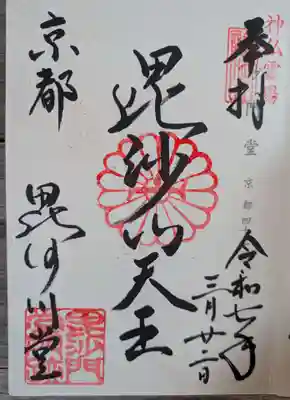 奉拝
神仏霊場
堂 京都四
令和七年
三月廿二日
毘沙門天王
京都
毘沙門堂
毘沙門